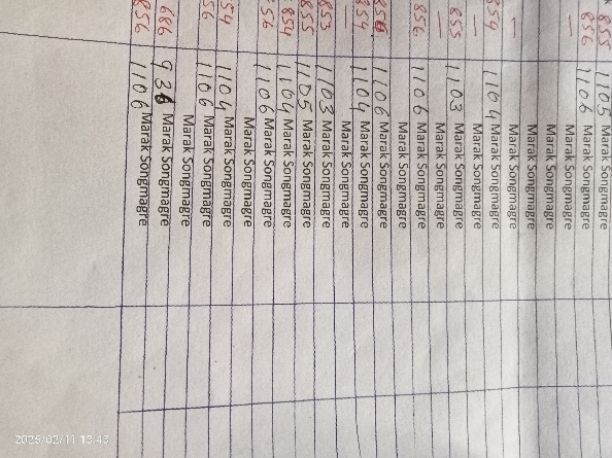 855 1105 Marak Songmagre
856 1106 Marak Songmagre
— Marak Songmagre
Marak Songmagre
Marak Songmagre
— Marak Songmagre
854 1104 Marak Songmagre
— Marak Songmagre
855 1103 Marak Songmagre
— Marak Songmagre
856 1106 Marak Songmagre
Marak Songmagre
856 1106 Marak Songmagre
854 1104 Marak Songmagre
— Marak Songmagre
853 1103 Marak Songmagre
855 1105 Marak Songmagre
854 1104 Marak Songmagre
56 1106 Marak Songmagre
Marak Songmagre
54 1104 Marak Songmagre
56 1106 Marak Songmagre
Marak Songmagre
686 936 Marak Songmagre
856 1106 Marak Songmagre
2025/02/11 13:43